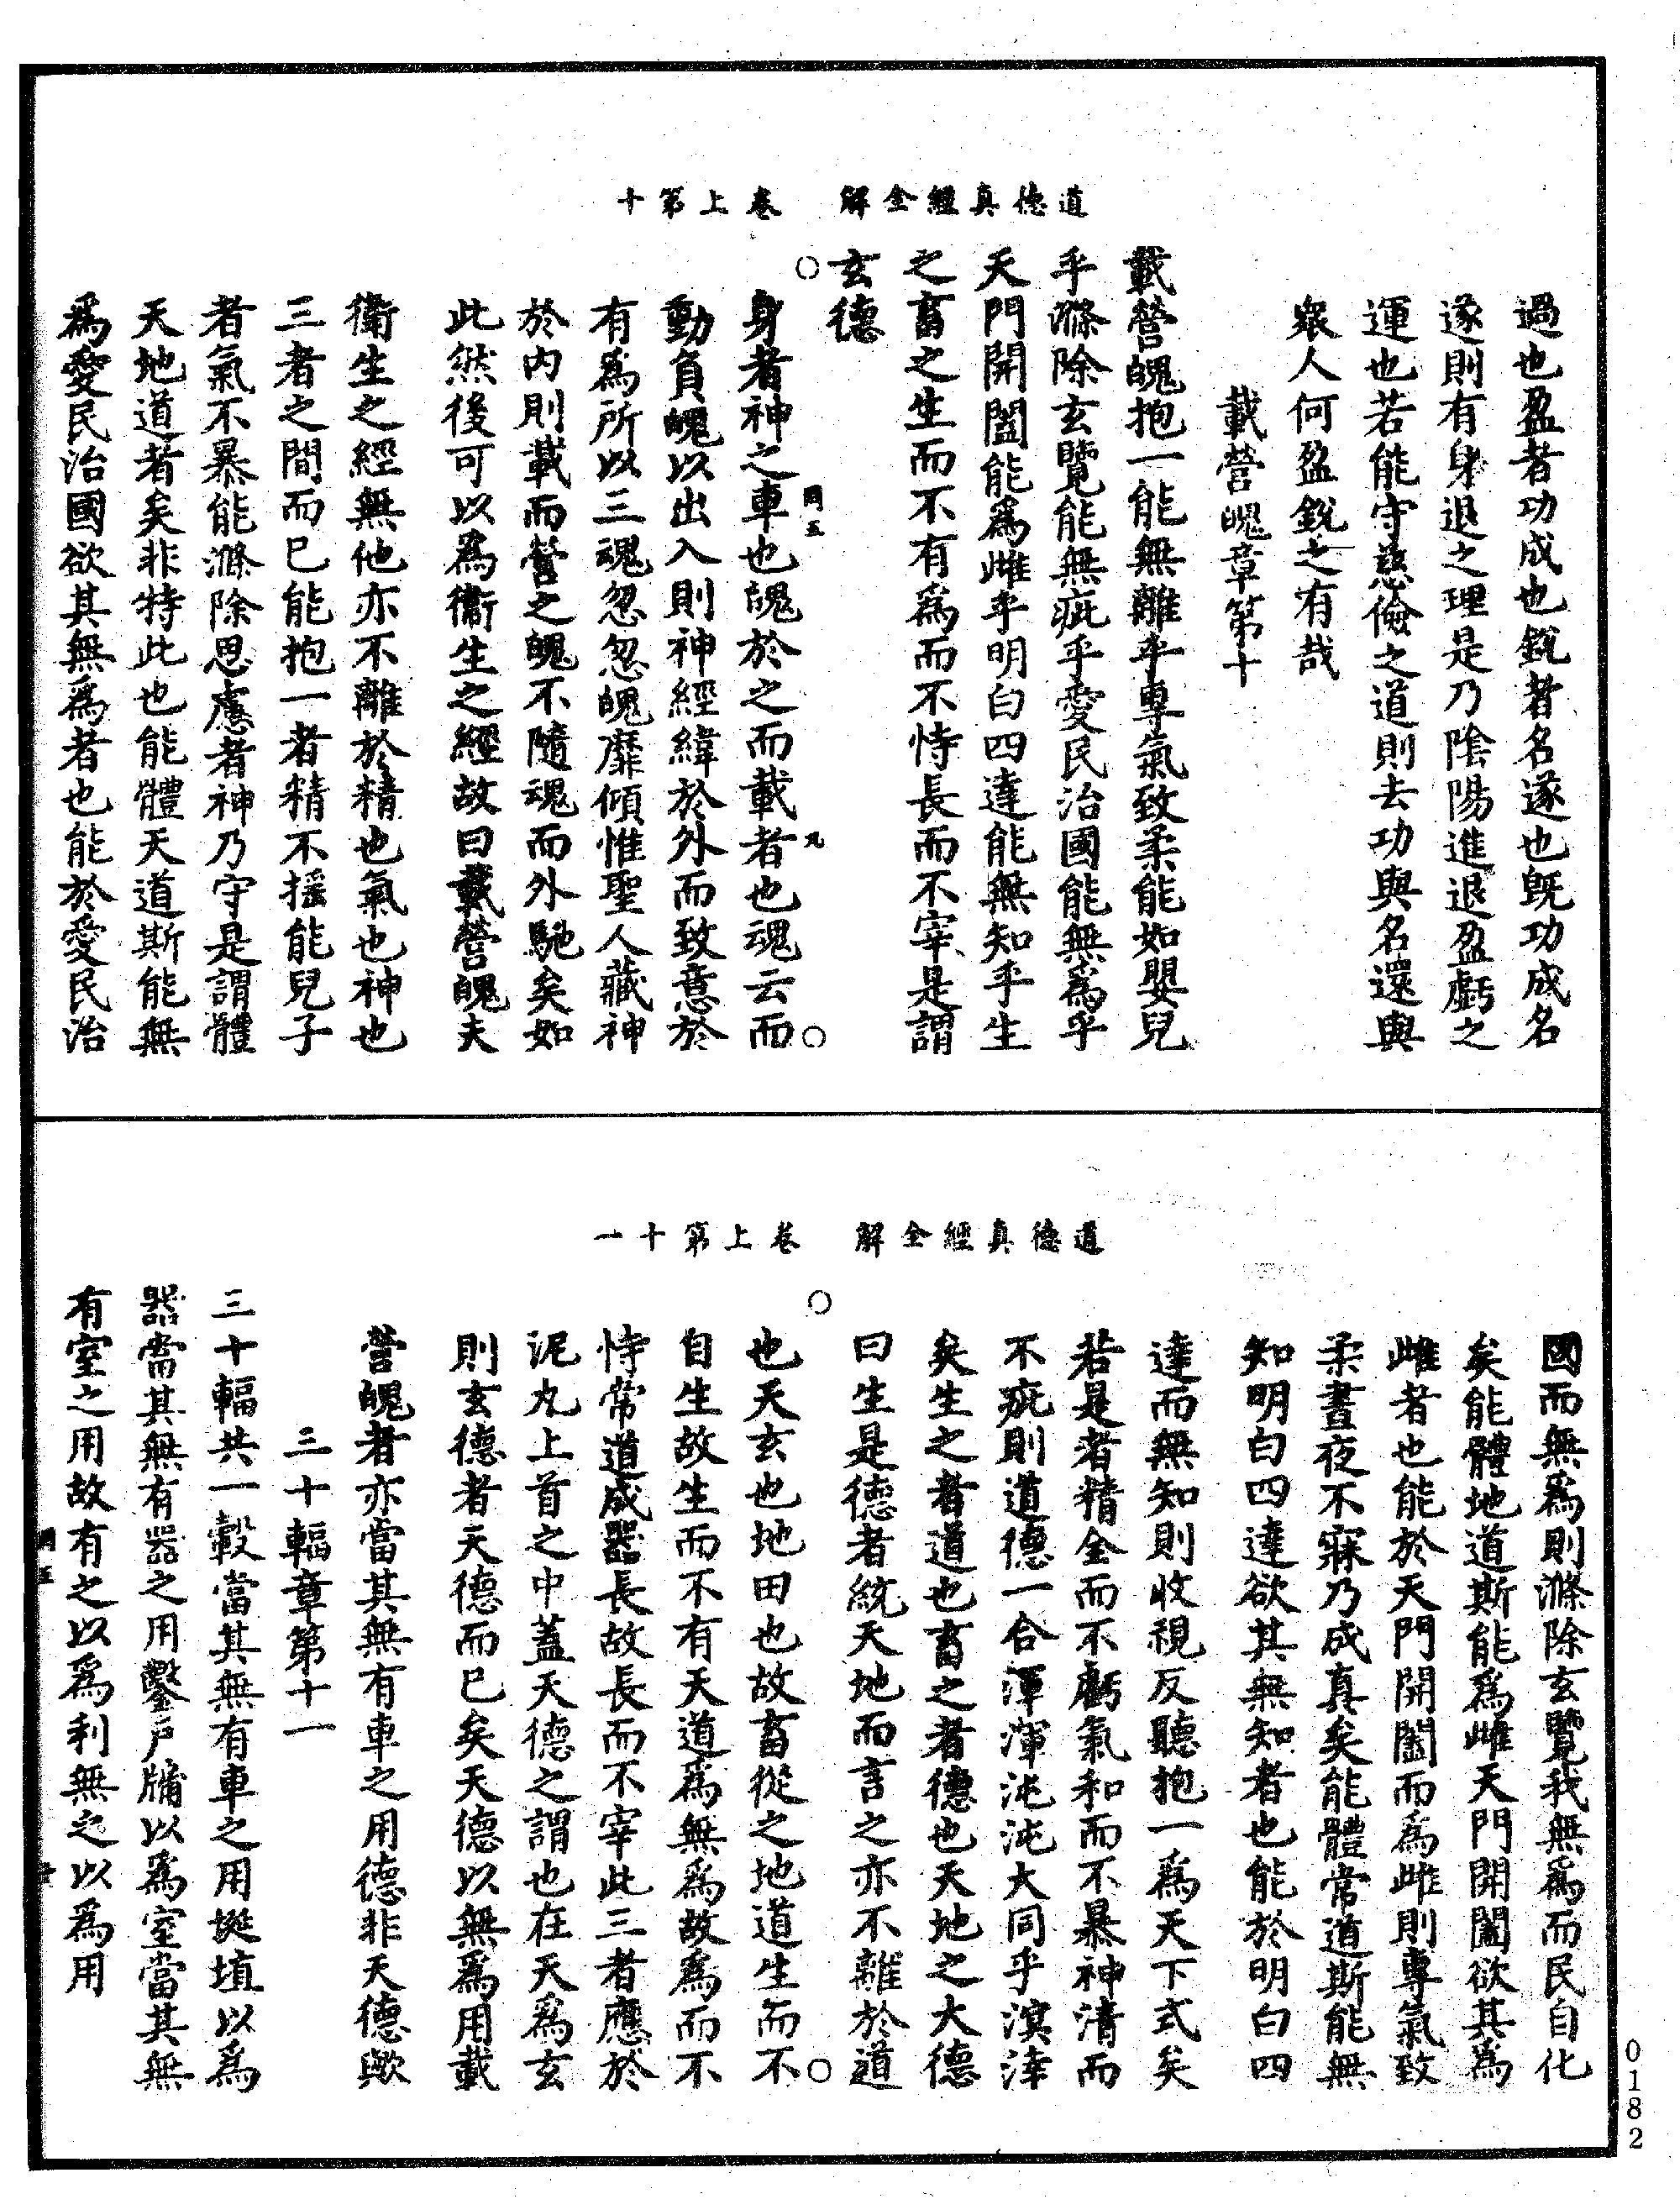 道德真經全解　卷上第十
過也盈者功成也銳者名遂也旣功成名
遂則有身退之理是乃陰陽進退盈虧之
運也若能守慈儉之道則去功與名還與
衆人何盈銳之有哉
載營魄章第十
載營魄抱一能無離乎專氣致柔能如嬰兒
乎滌除玄覽能無疵乎愛民治國能無爲乎
天門開闔能爲雌乎明白四達能無知乎生
之畜之生而不有爲而不恃長而不宰是謂
玄德
罔五　九
身者神之車也魄於之而載者也魂云而
動負魄以出入則神經緯於外而致意於
有爲所以三魂忽忽魄靡傾惟聖人藏神
於內則載而營之魄不隨魂而外馳矣如
此然後可以爲衞生之經故曰載營魄夫
衞生之經無他亦不離於精也氣也神也
三者之間而已能抱一者精不搖能兒子
者氣不暴能滌除思慮者神乃守是謂體
天地道者矣非特此也能體天道斯能無
爲愛民治國欲其無爲者也能於愛民治
道德真經全解　卷上第十一
國而無爲則滌除玄覽我無爲而民自化
矣能體地道斯能爲雌天門開闔欲其爲
雌者也能於天門開闔而爲雌則專氣致
柔晝夜不寐乃成真矣能體常道斯能無
知明白四達欲其無知者也能於明白四
達而無知則收視反聽抱一爲天下式矣
若是者精全而不虧氣和而不暴神清而
不疵則道德一合渾渾沌沌大同乎溟涬
矣生之者道也畜之者德也天地之大德
曰生是德者統天地而言之亦不離於道
也天玄也地田也故畜從之地道生而不
自生故生而不有天道爲無爲故爲而不
恃常道成器長故長而不宰此三者應於
泥丸上首之中蓋天德之謂也在天爲玄
則玄德者天德而已矣天德以無爲用載
營魄者亦當其無有車之用德非天德歟
三十輻章第十一
三十輻共一轂當其無有車之用埏埴以爲
器當其無有器之用鑿戶牖以爲室當其無
有室之用故有之以爲利無之以爲用
罔五
0182